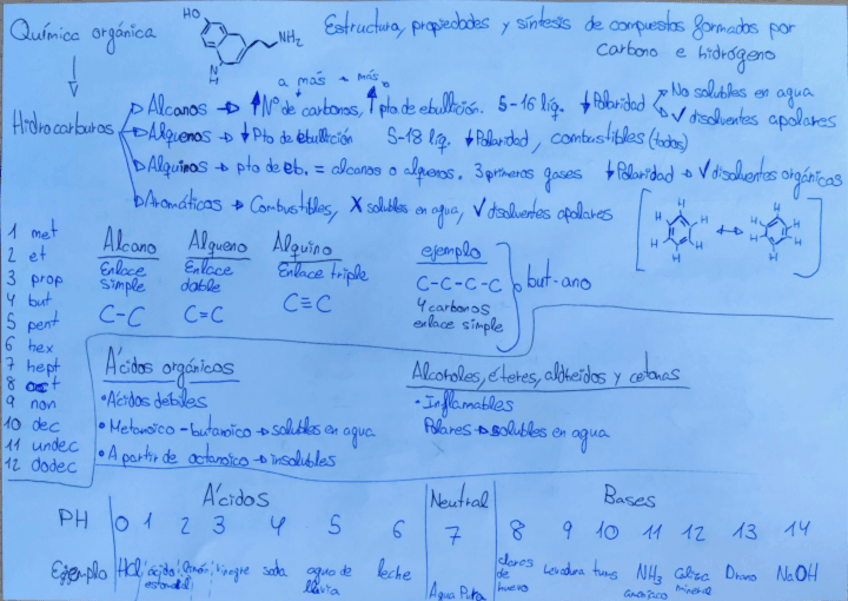 Química orgánica
HO
NH₂
N
H
Estructura, propiedades y síntesis de compuestos formados por
carbono e hidrógeno
Hidrocarburos
a más más
Alcanos → ↑Nº de carbonos, ↑pto de ebullición. 5-16 líq. ↓Polaridad
No solubles en agua
✓ disolventes apolares
Alquenos → ↓Pto de ebullición 5-18 líq. ↓Polaridad, combustibles (todos)
Alquinos → pto de eb. = alcanos o alquenos. 3 primeros gases ↓Polaridad → ✓ disolventes orgánicos
Aromáticos → Combustibles, X solubles en agua, ✓ disolventes apolares
H H H H H H
H H H H H H
1 met
2 et
3 prop
4 but
5 pent
6 hex
7 hept
8 oct
9 non
10 dec
11 undec
12 dodec
Alcano
Enlace
simple
C-C
Alqueno
Enlace
doble
C=C
Alquino
Enlace triple
C≡C
ejemplo
C-C-C-C
4 carbonos
enlace simple
but-ano
Ácidos orgánicos
•Ácidos débiles
•Metanoico - butanoico → solubles en agua
•A partir de octanoico → insolubles
Alcoholes, éteres, aldheidos y cetonas
•Inflamables
Polares → solubles en agua
Ácidos Neutral Bases
PH 0 1 2 3 4 5 6 7 8 9 10 11 12 13 14
Ejemplo HCl ácido limón vinagre soda agua de lluvia leche Agua Pura claras de huevo Levadura tums NH₃ amoníaco Caliza mineral Drano NaOH